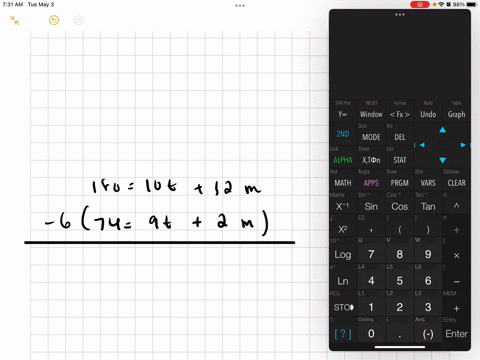 7:31 AM Tue May 3
98%
180 = 10t + 12 m
-6 ( 74 = 9t + 2 m )
Stat Plot TBLSET Format Mode Table
Y= Window < Fx > Undo Graph
Quit Ins
2ND MODE DEL
Lock Share List
ALPHA X,T,Φ,n STAT
Test Angle Distr Draw
MATH APPS PRGM VARS CLEAR
Matrix Sin⁻¹ Cos⁻¹ Tan⁻¹ π
X⁻¹ Sin Cos Tan ^
√ EE { } e
X² , ( ) ÷
10ˣ u v w [
Log 7 8 9 ×
eˣ L4 L5 L6 ]
Ln 4 5 6 −
RCL L1 L2 L3 MEM
STO 1 2 3 +
Catalog i Ans Entry
[ ? ] 0 . (-) Enter